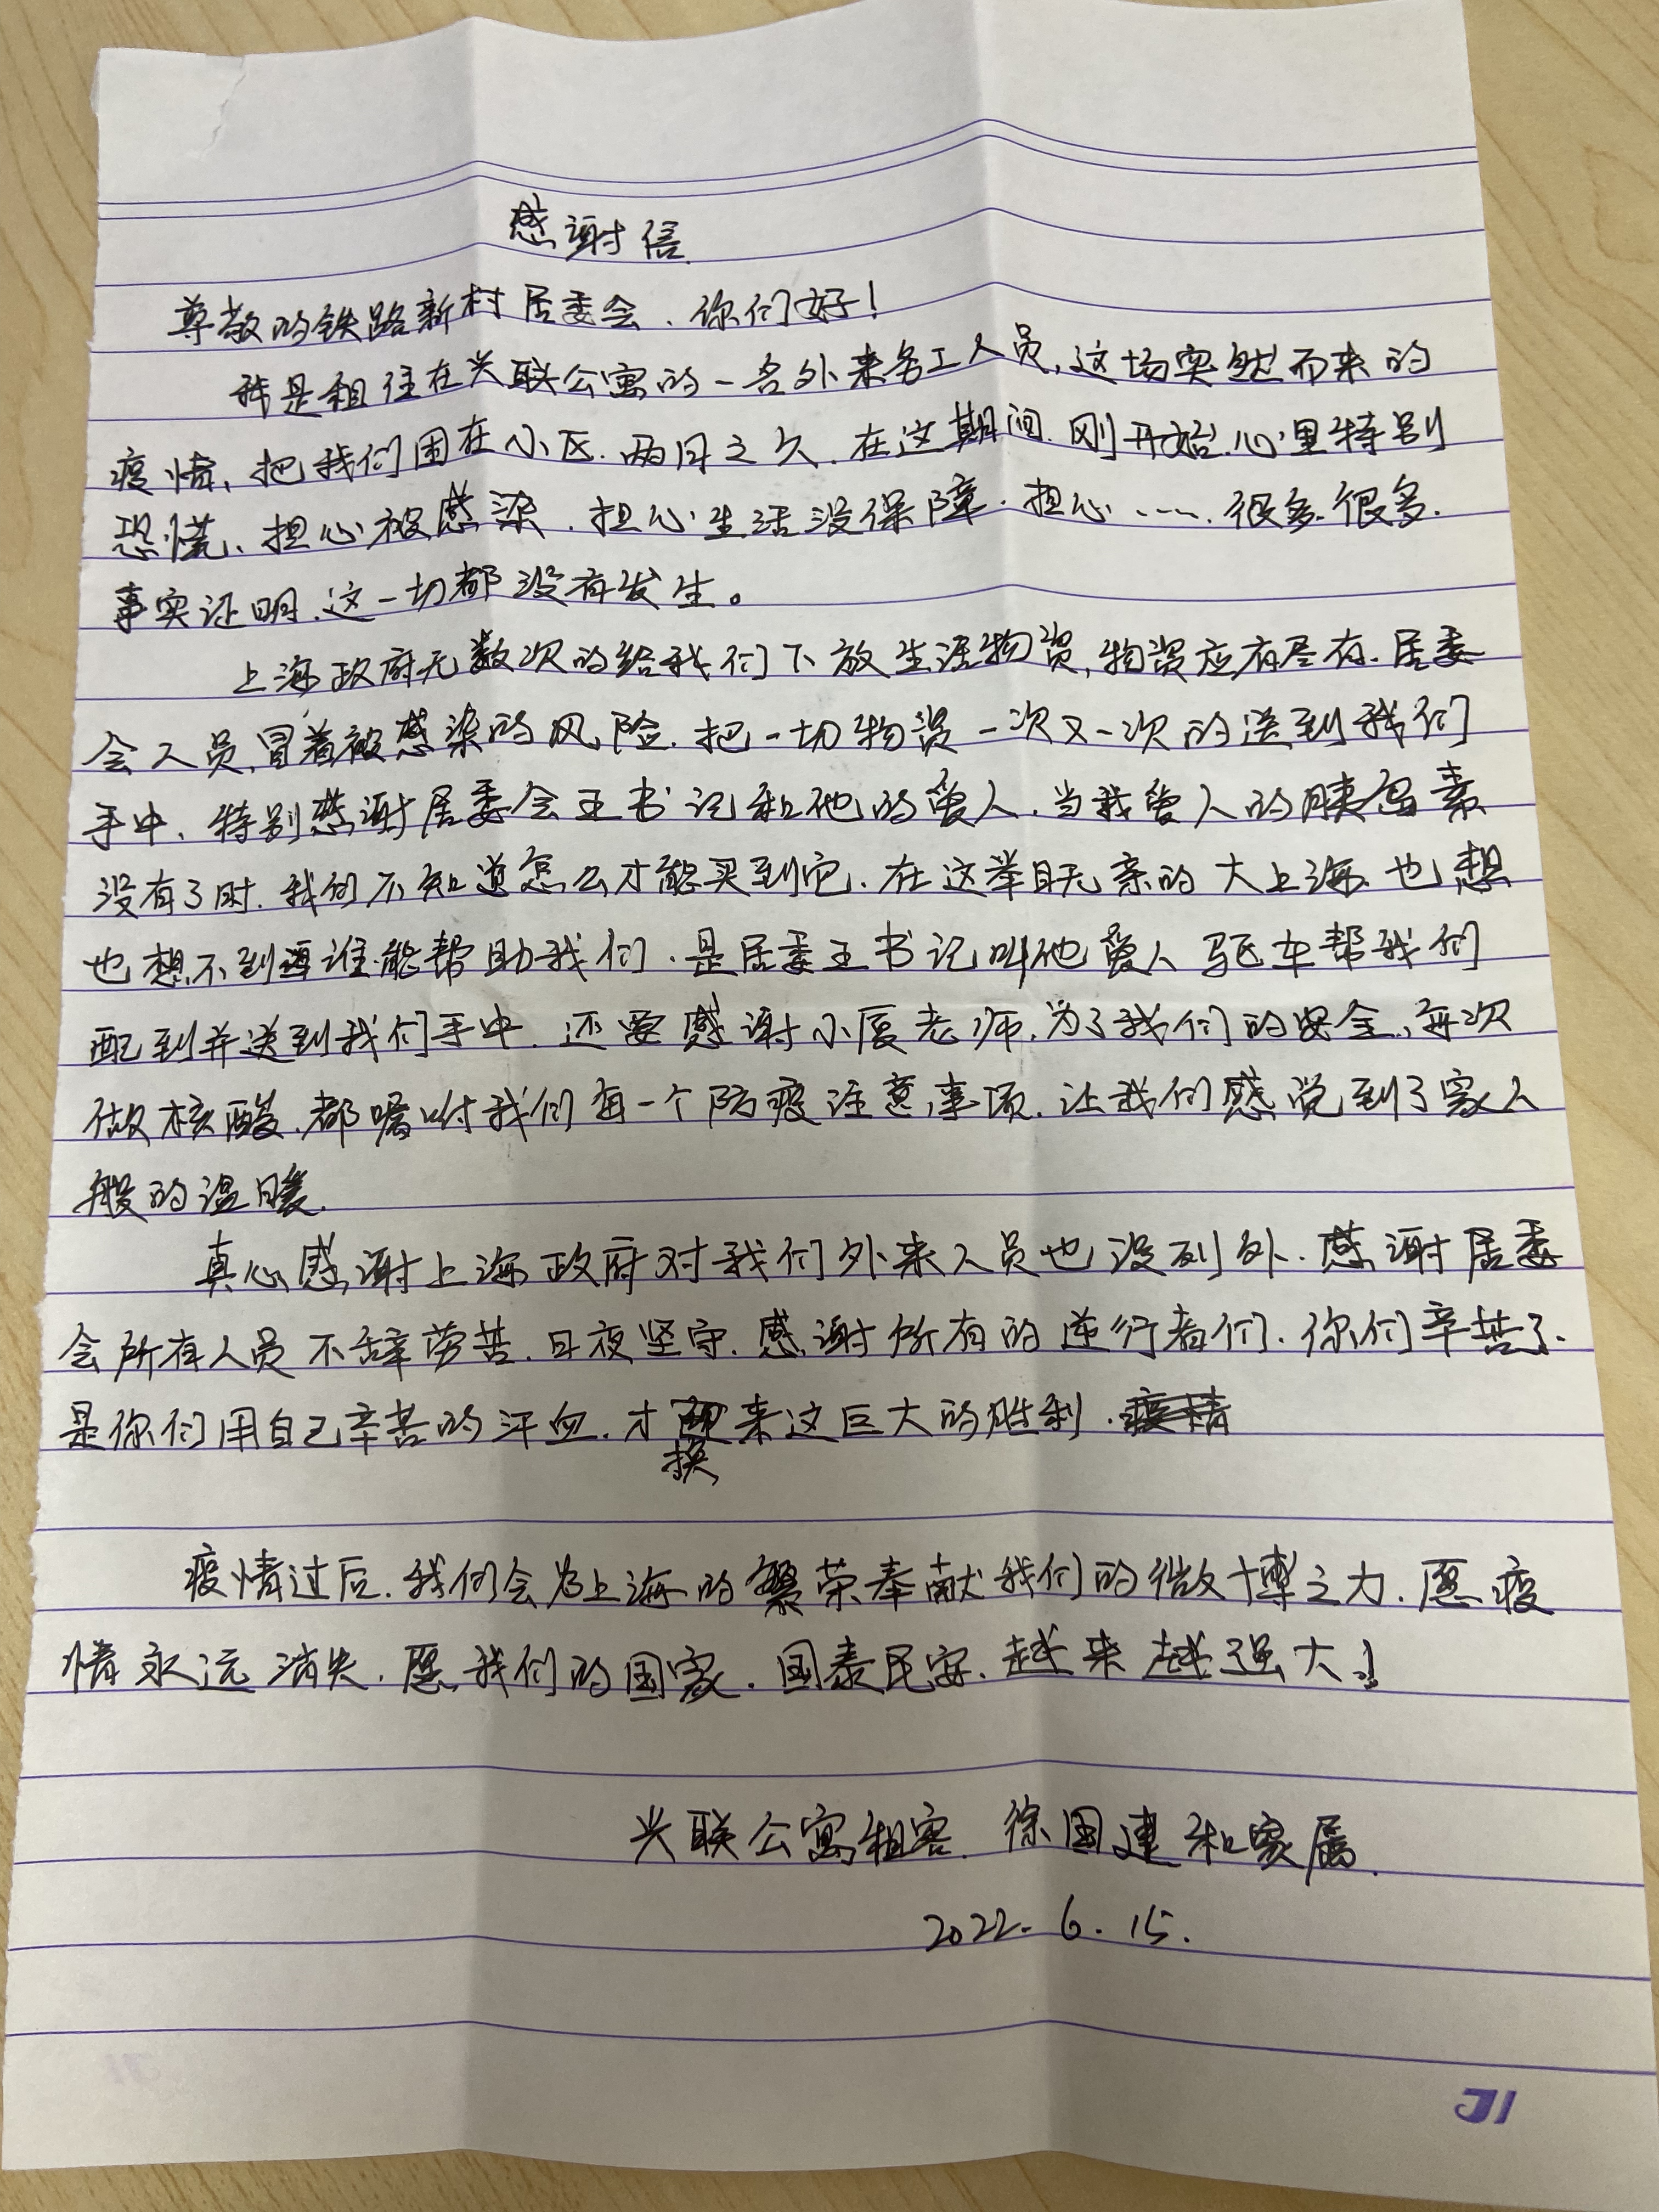 感谢信
尊敬的铁路新村居委会、你们好!
我是租住在兴联公寓的一名外来务工人员,这场突然而来的
疫情、把我们困在小区.两月之久.在这期间.刚开始.心里特别
恐慌、担心被感染.担心生活没保障.担心…….很多.很多.
事实证明.这一切都没有发生。
上海政府无数次的给我们下放生活物资,物资应有尽有.居委
会人员,冒着被感染的风险.把一切物资一次又一次的送到我们
手中、特别感谢居委会王书记和他的爱人.当我爱人的胰岛素
没有了时.我们不知道怎么才能买到它.在这举目无亲的大上海.也想
也想不到谁能帮助我们.是居委王书记叫他爱人驱车帮我们
配到并送到我们手中.还要感谢小厦老师.为了我们的安全,每次
做核酸.都嘱咐我们每一个防疫注意事项.让我们感觉到了家人
般的温暖.
真心感谢上海政府对我们外来人员也没列外.感谢居委
会所有人员不辞劳苦.日夜坚守.感谢所有的逆行者们.你们辛苦了.
是你们用自己辛苦的汗血.才换来这巨大的胜利.疫情
疫情过后.我们会为上海的繁荣奉献我们的微博之力.愿疫
情永远消失.愿我们的国家.国泰民安.越来越强大!
兴联公寓租客.徐国建和家属.
2022.6.15.